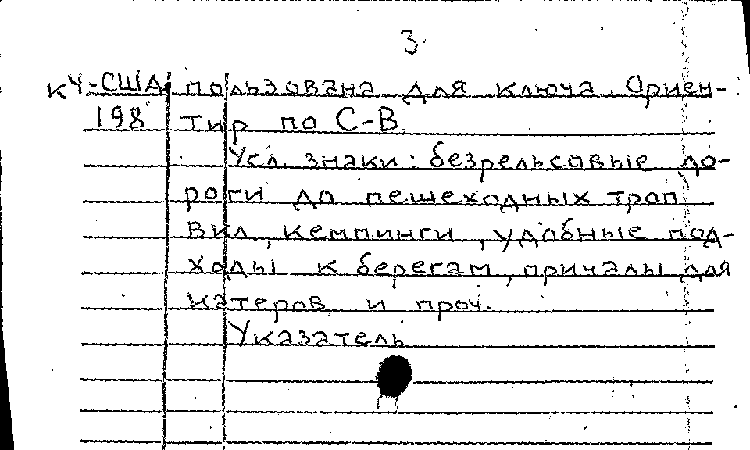 3.
К4-США пользована для ключа. Ориен-
198 тир по С-В
Усл. знаки: безрельсовые до-
роги до пешеходных троп
вкл., кемпинги, удобные под-
ходы к берегам, причалы для
катеров и проч.
Указатель